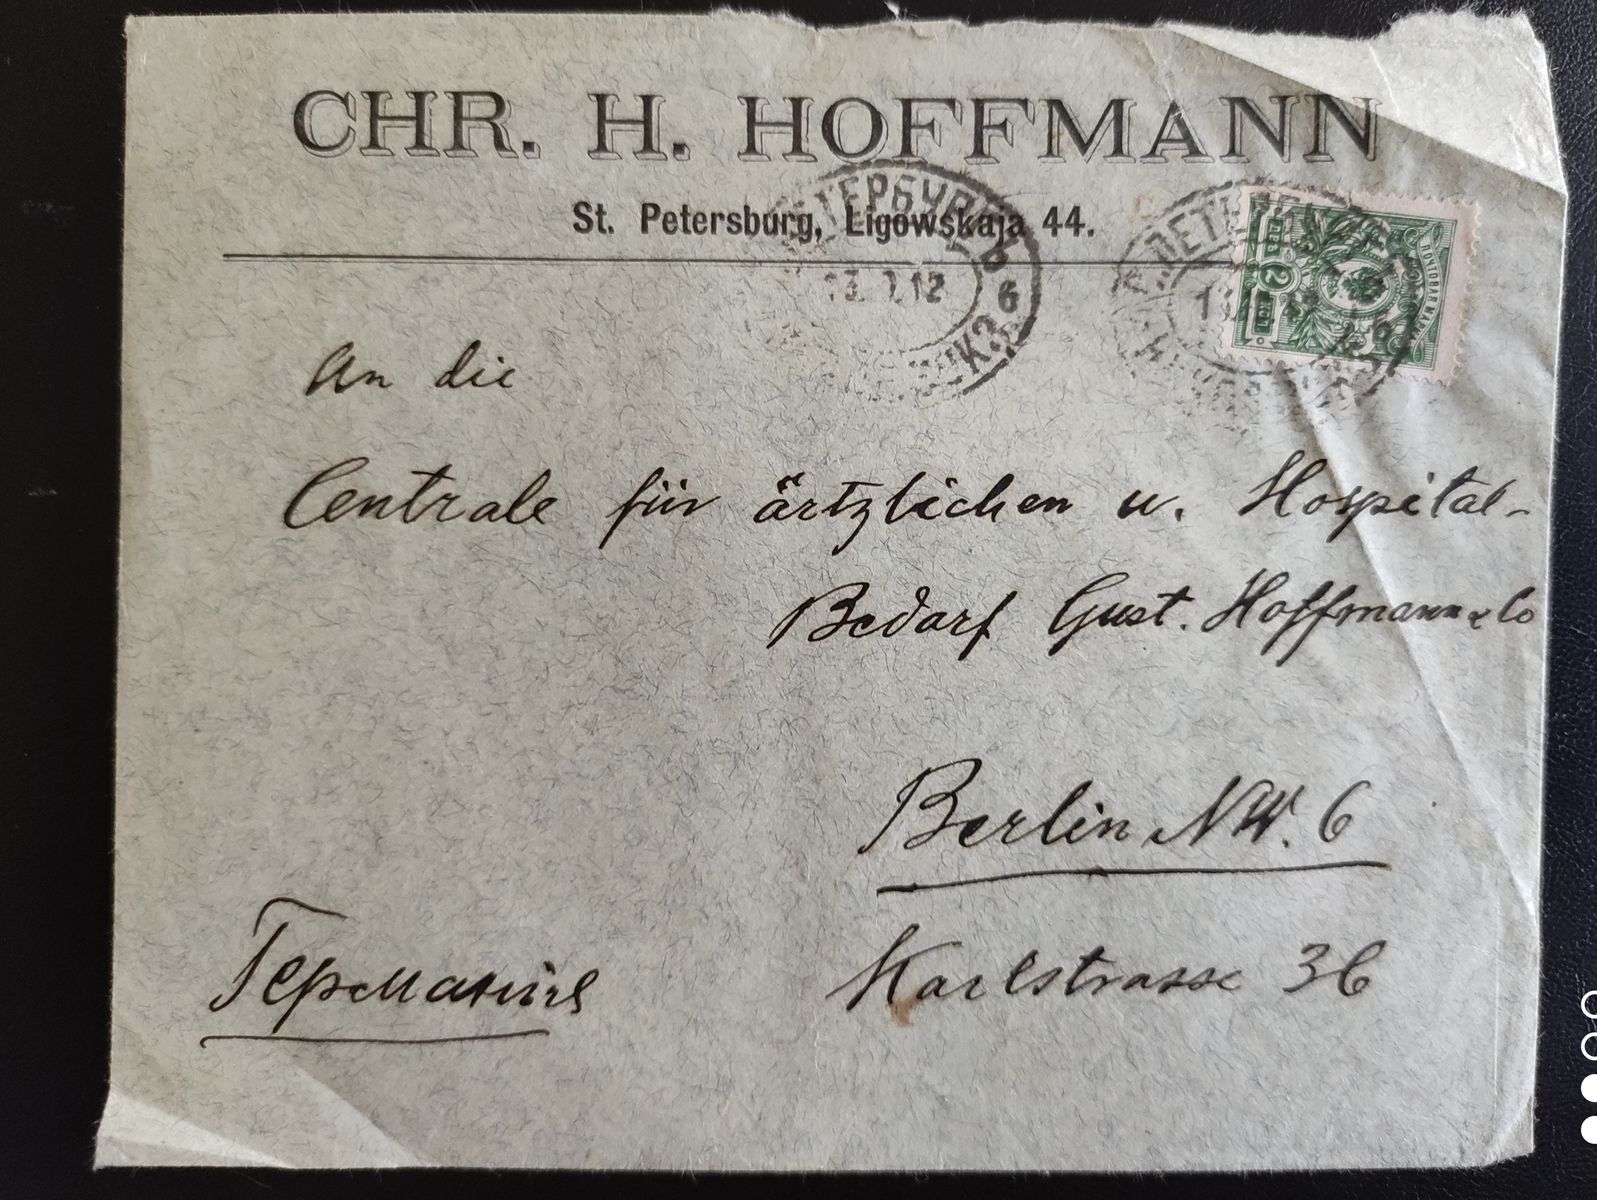 CHR. H. HOFFMANN
St. Petersburg, Ligowskaja 44.
13. 12
6
ПОЧТОВАЯ МАРКА
2
An die
Centrale für ärtzlichen u. Hospital-
Bedarf Gust. Hoffmann & Co
Berlin NW. 6
Karlstrasse 36
Германія